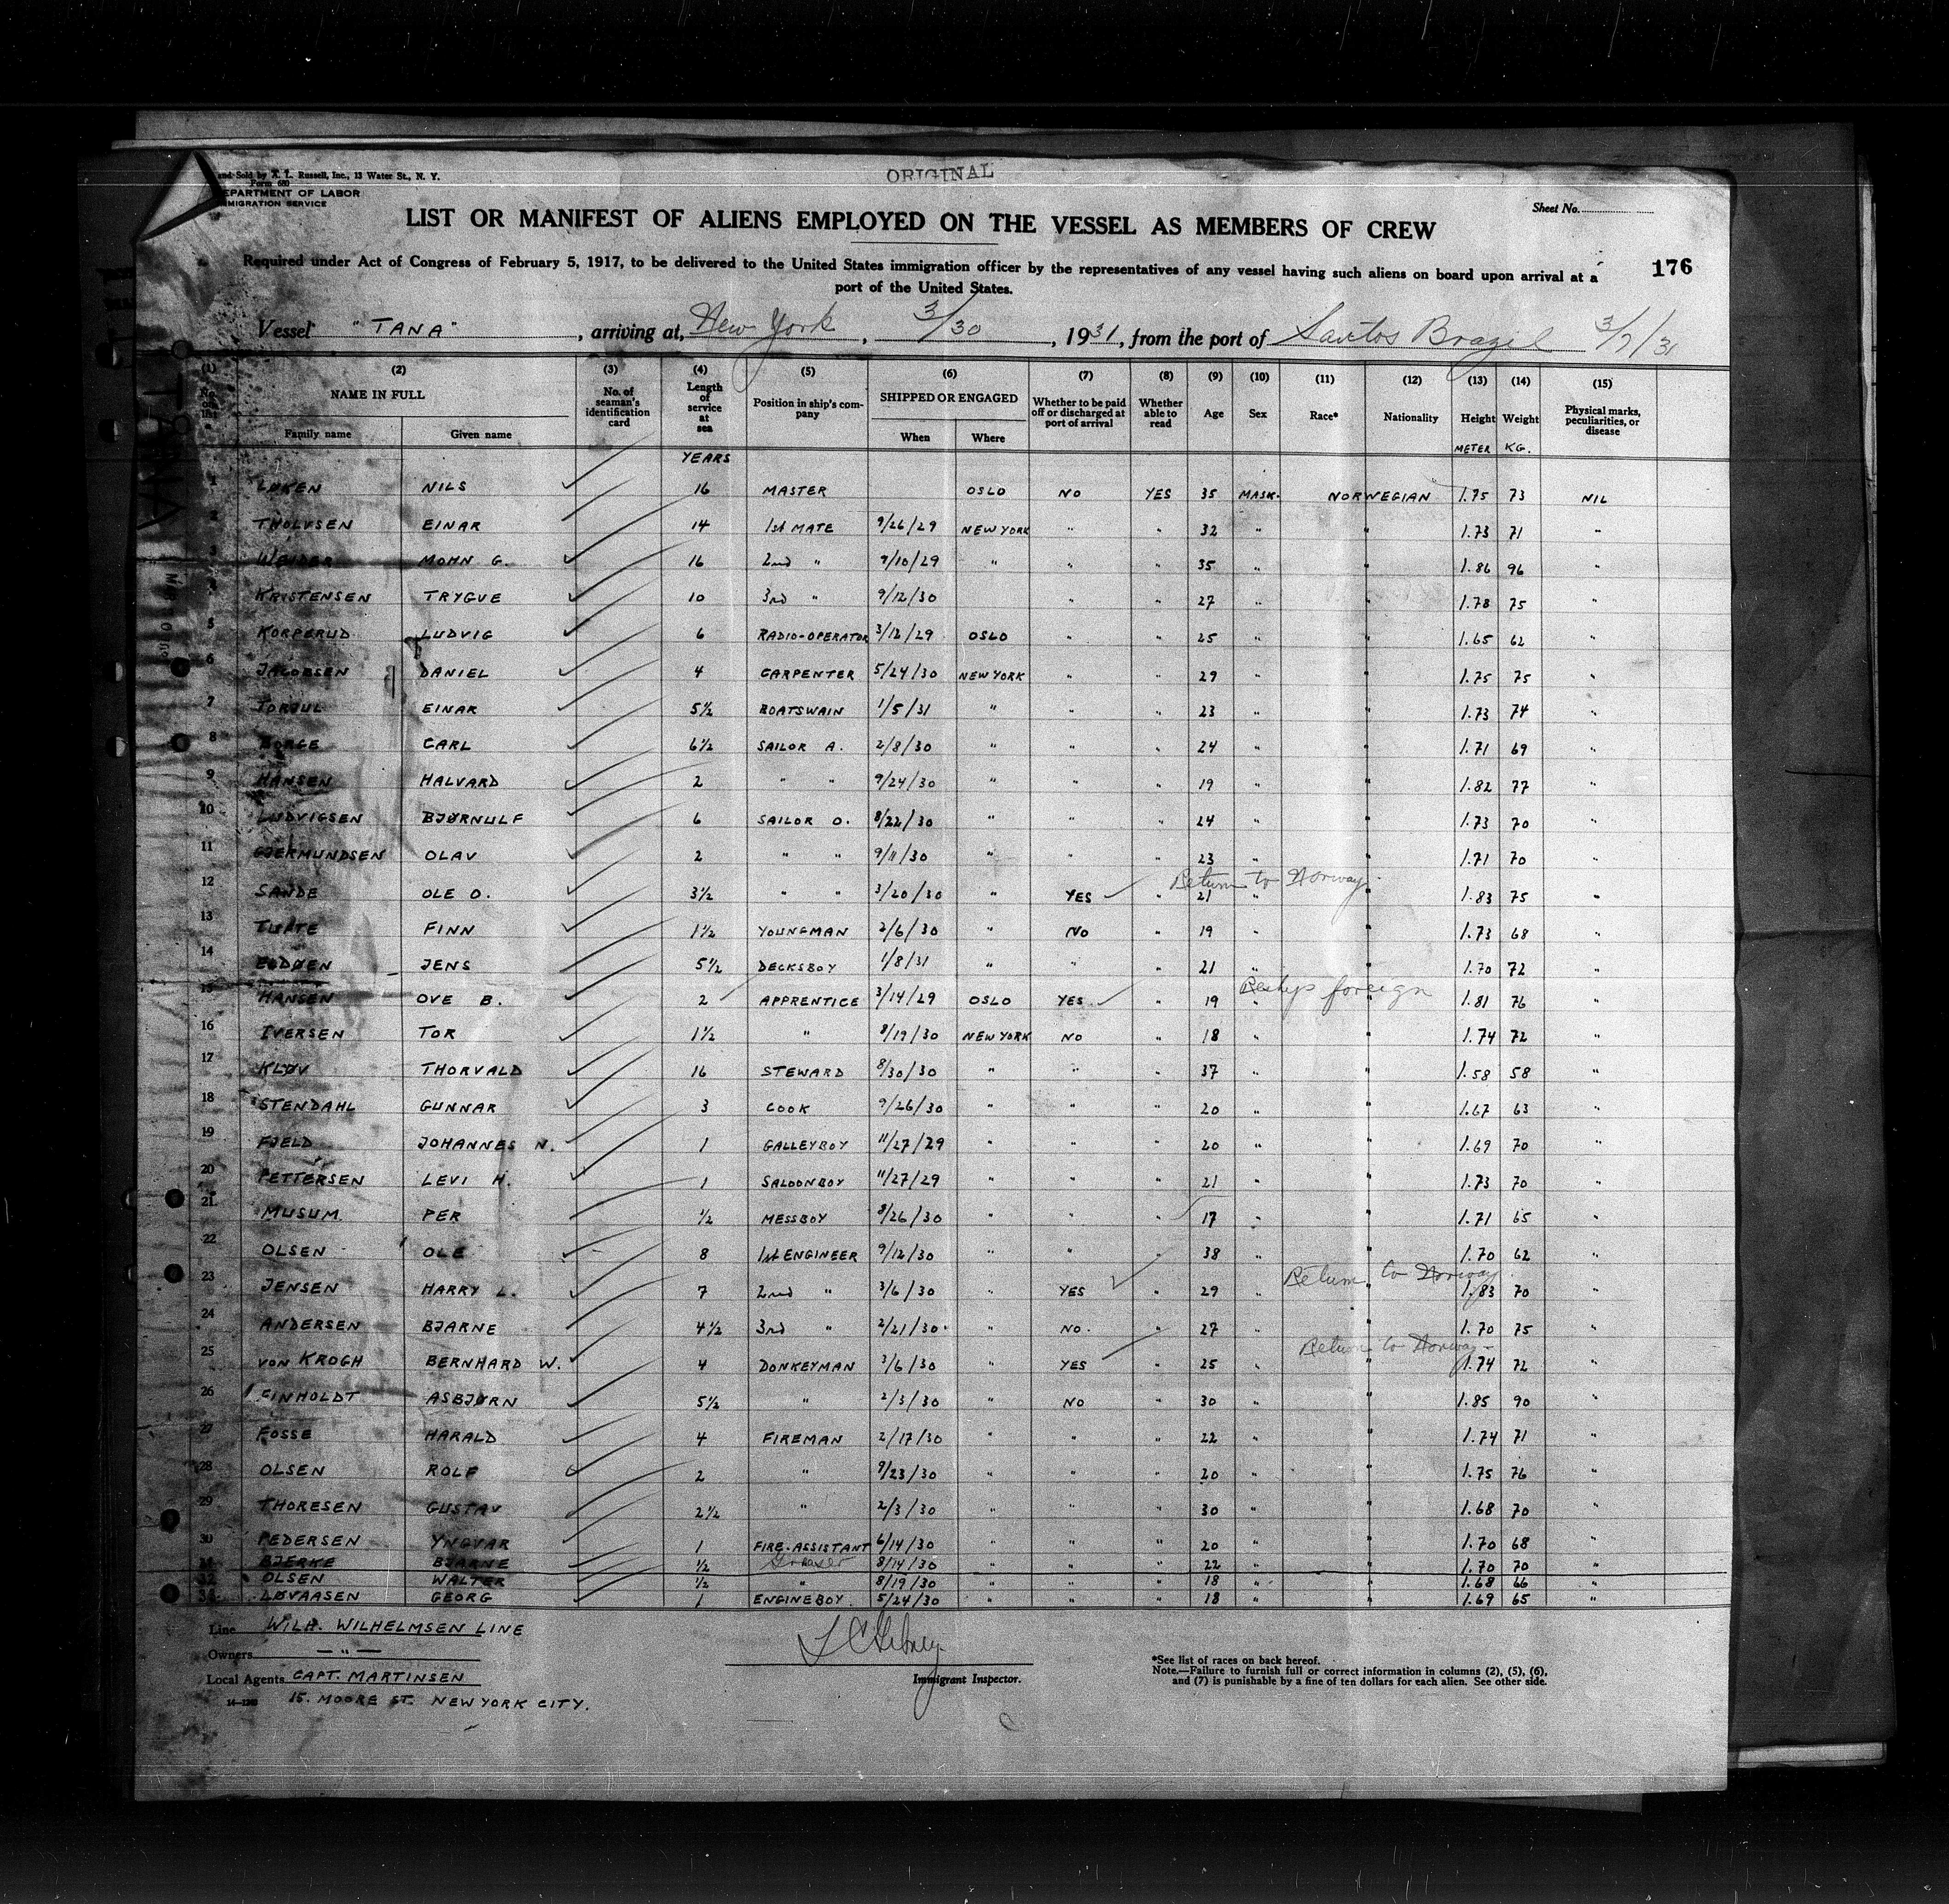 ORIGINAL
and Sold by A. L. Russell, Inc., 13 Water St., N. Y.
Form 680
DEPARTMENT OF LABOR
IMMIGRATION SERVICE
Sheet No.
LIST OR MANIFEST OF ALIENS EMPLOYED ON THE VESSEL AS MEMBERS OF CREW
176
Required under Act of Congress of February 5, 1917, to be delivered to the United States immigration officer by the representatives of any vessel having such aliens on board upon arrival at a
port of the United States.
Vessel "TANA", arriving at, New York, 3/30, 1931, from the port of Santos Brazil 3/7/31
(1) (2) (3) (4) (5) (6) (7) (8) (9) (10) (11) (12) (13) (14) (15)
No. on list NAME IN FULL Family name Given name No. of seaman's identification card Length of service at sea Position in ship's company SHIPPED OR ENGAGED When Where Whether to be paid off or discharged at port of arrival Whether able to read Age Sex Race* Nationality Height Weight Physical marks, peculiarities, or disease
YEARS METER KG.
1 LØKEN NILS 16 MASTER OSLO NO YES 35 MASK. NORWEGIAN 1.75 73 NIL
2 THOLVSEN EINAR 14 1st MATE 9/26/29 NEW YORK " " 32 " " 1.73 71 "
3 WEIDER MOHN G. 16 2nd " 9/10/29 " " " 35 " " 1.86 96 "
4 KRISTENSEN TRYGVE 10 3rd " 9/12/30 " " 27 " " 1.78 75 "
5 KORPERUD LUDVIG 6 RADIO-OPERATOR 3/12/29 OSLO " " 25 " " 1.65 62 "
6 JACOBSEN DANIEL 4 CARPENTER 5/24/30 NEW YORK " " 29 " " 1.75 75 "
7 TORJUL EINAR 5½ BOATSWAIN 1/5/31 " " " 23 " " 1.73 74 "
8 BORGE CARL 6½ SAILOR A. 2/8/30 " " " 24 " " 1.71 69 "
9 HANSEN HALVARD 2 " " 9/24/30 " " " 19 " " 1.82 77 "
10 LUDVIGSEN BJØRNULF 6 SAILOR O. 8/22/30 " " " 24 " " 1.73 70 "
11 GJERMUNDSEN OLAV 2 " " 9/11/30 " " " 23 " " 1.71 70 "
12 SANDE OLE O. 3½ " " 3/20/30 " YES " 21 " Return to Norway " 1.83 75 "
13 TUFTE FINN 1½ YOUNGMAN 2/6/30 " NO " 19 " " 1.73 68 "
14 ELDØEN JENS 5½ DECKSBOY 1/8/31 " " " 21 " " 1.70 72 "
15 HANSEN OVE B. 2 APPRENTICE 3/14/29 OSLO YES " 19 " Reship foreign " 1.81 76 "
16 IVERSEN TOR 1½ " 8/19/30 NEW YORK NO " 18 " " 1.74 72 "
17 KLØV THORVALD 16 STEWARD 8/30/30 " " " 37 " " 1.58 58 "
18 STENDAHL GUNNAR 3 COOK 9/26/30 " " " 20 " " 1.67 63 "
19 FJELD JOHANNES N. 1 GALLEYBOY 11/27/29 " " " 20 " " 1.69 70 "
20 PETTERSEN LEVI H. 1 SALOONBOY 11/27/29 " " " 21 " " 1.73 70 "
21 MUSUM PER ½ MESSBOY 8/26/30 " " " 17 " " 1.71 65 "
22 OLSEN OLE 8 1st ENGINEER 9/12/30 " " " 38 " " 1.70 62 "
23 JENSEN HARRY L. 7 2nd " 3/6/30 " YES " 29 " Return to Norway " 1.83 70 "
24 ANDERSEN BJARNE 4½ 3rd " 2/21/30 " NO. " 27 " " 1.70 75 "
25 von KROGH BERNHARD W. 4 DONKEYMAN 3/6/30 " YES " 25 " Return to Norway " 1.74 72 "
26 FINHOLDT ASBJØRN 5½ " 2/3/30 " NO " 30 " " 1.85 90 "
27 FOSSE HARALD 4 FIREMAN 2/17/30 " " " 22 " " 1.74 71 "
28 OLSEN ROLF 2 " 9/23/30 " " " 20 " " 1.75 76 "
29 THORESEN GUSTAV 2½ " 2/3/30 " " " 30 " " 1.68 70 "
30 PEDERSEN YNGVAR 1 FIRE-ASSISTANT 6/14/30 " " " 20 " " 1.70 68 "
31 BJERKE BJARNE ½ Greaser 8/14/30 " " " 22 " " 1.70 70 "
32 OLSEN WALTER ½ " 8/19/30 " " " 18 " " 1.68 66 "
33 LØVAASEN GEORG 1 ENGINEBOY. 5/24/30 " " " 18 " " 1.69 65 "
Line WILH. WILHELMSEN LINE
Owners — " —
Local Agents CAPT. MARTINSEN
15. MOORE ST. NEW YORK CITY.
Immigrant Inspector.
*See list of races on back hereof.
Note.—Failure to furnish full or correct information in columns (2), (5), (6),
and (7) is punishable by a fine of ten dollars for each alien. See other side.